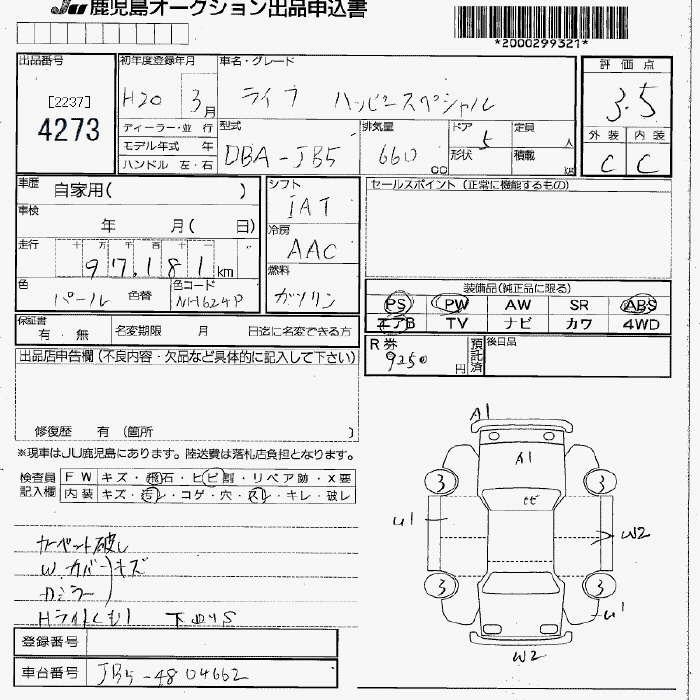 JU 鹿児島オークション出品申込書
*2000299321*
出品番号
[2237]
4273
初年度登録年月
H20 3月
車名・グレード
ライフ ハッピースペシャル
評価点
3.5
外装 内装
C C
ディーラー・並 行
モデル年式 年
ハンドル 左・右
型式
DBA-JB5
排気量
660 cc
ドア 5
形状
定員 人
積載 kg
車歴 自家用( )
車検 年 月( 日)
走行 十 万 千 百 十 一
97,181 km
色 パール 色替
色コード NH624P
シフト
IAT
冷房
AAC
燃料
ガソリン
セールスポイント (正常に機能するもの)
装備品(純正品に限る)
PS PW AW SR ABS
エアB TV ナビ カワ 4WD
保証書
有・無
名変期限 月 日迄に名変できる方
R券
9250 円
預託済
後日品
出品店申告欄(不良内容・欠品など具体的に記入して下さい)
修復歴 有 (箇所 )
※現車はJU鹿児島にあります。陸送費は落札店負担となります。
検査員
記入欄
FW キズ・飛石・ヒビ割・リペア跡・X要
内装 キズ・汚レ・コゲ・穴・スレ・キレ・破レ
カーペット破レ
W.カバー キズ
Dミラー
Hライトくもり 下回りS
登録番号
車台番号 JB5-4804662
A1
A1
3 3
ヒビ
U1
W2
3 3
U1
W2